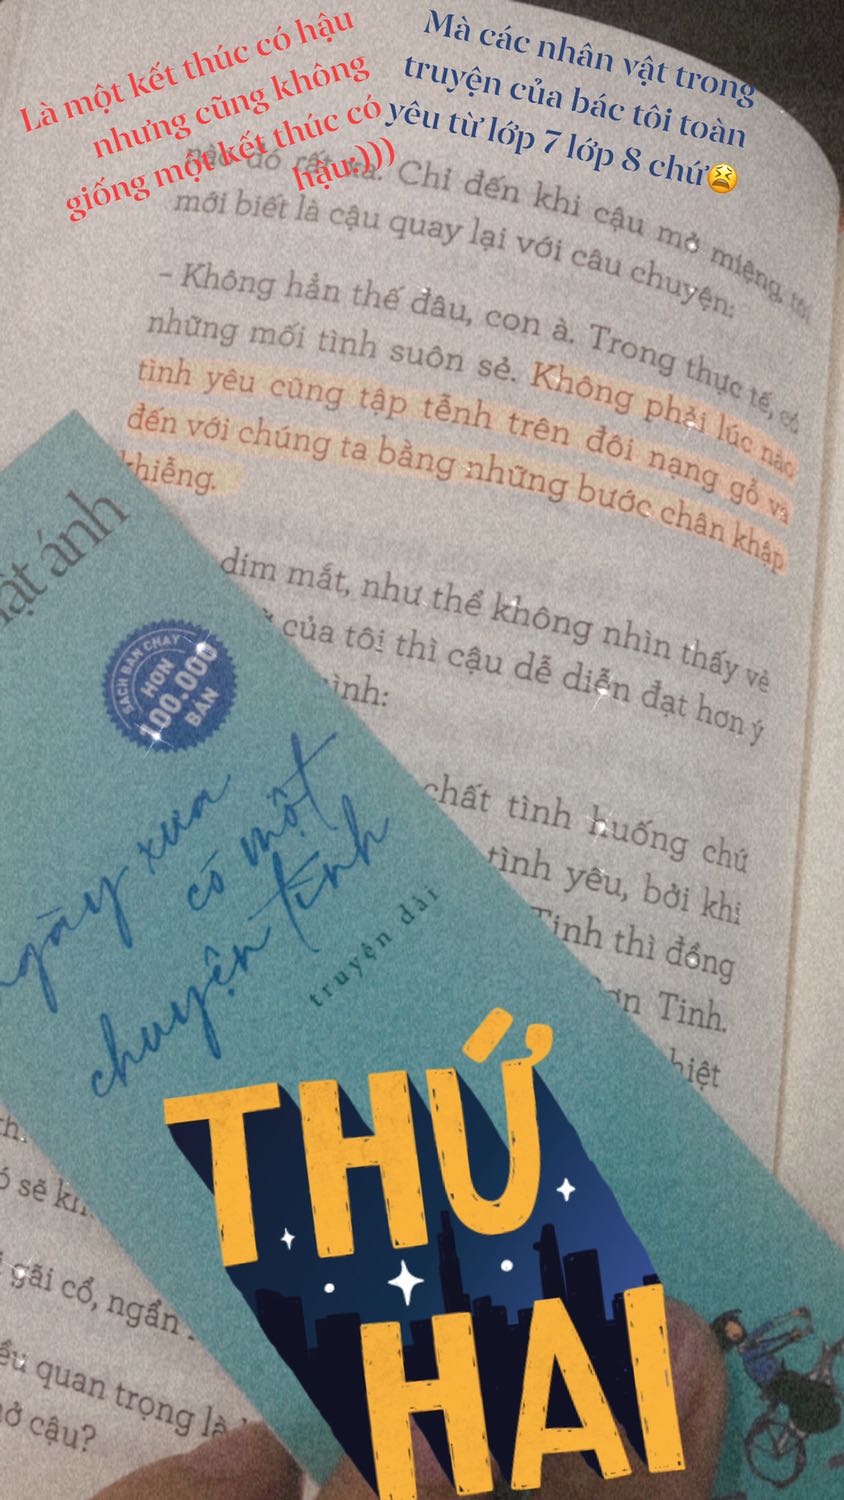 Là một kết thúc có hậu
nhưng cũng không
giống một kết thúc có
hậu:)))
Mà các nhân vật trong
truyện của bác tôi toàn
yêu từ lớp 7 lớp 8 chứ😫
nào đó rất xa. Chỉ đến khi cậu mở miệng, tôi
mới biết là cậu quay lại với câu chuyện:
– Không hẳn thế đâu, con à. Trong thực tế, có
những mối tình suôn sẻ. Không phải lúc nào
tình yêu cũng tập tễnh trên đôi nạng gỗ và
đến với chúng ta bằng những bước chân khập
khiễng.
dim mắt, như thể không nhìn thấy vẻ
của tôi thì cậu dễ diễn đạt hơn ý
mình:
chất tình huống chứ
tình yêu, bởi khi
Tinh thì đồng
Sơn Tinh.
hiệt
ật ánh
SÁCH BÁN CHẠY
HƠN
100.000
BẢN
ngày xưa
có một
chuyện tình
truyện dài
THỨ
HAI
th
ó sẽ kh
i gãi cổ, ngẩn
ều quan trọng là
ở cậu?